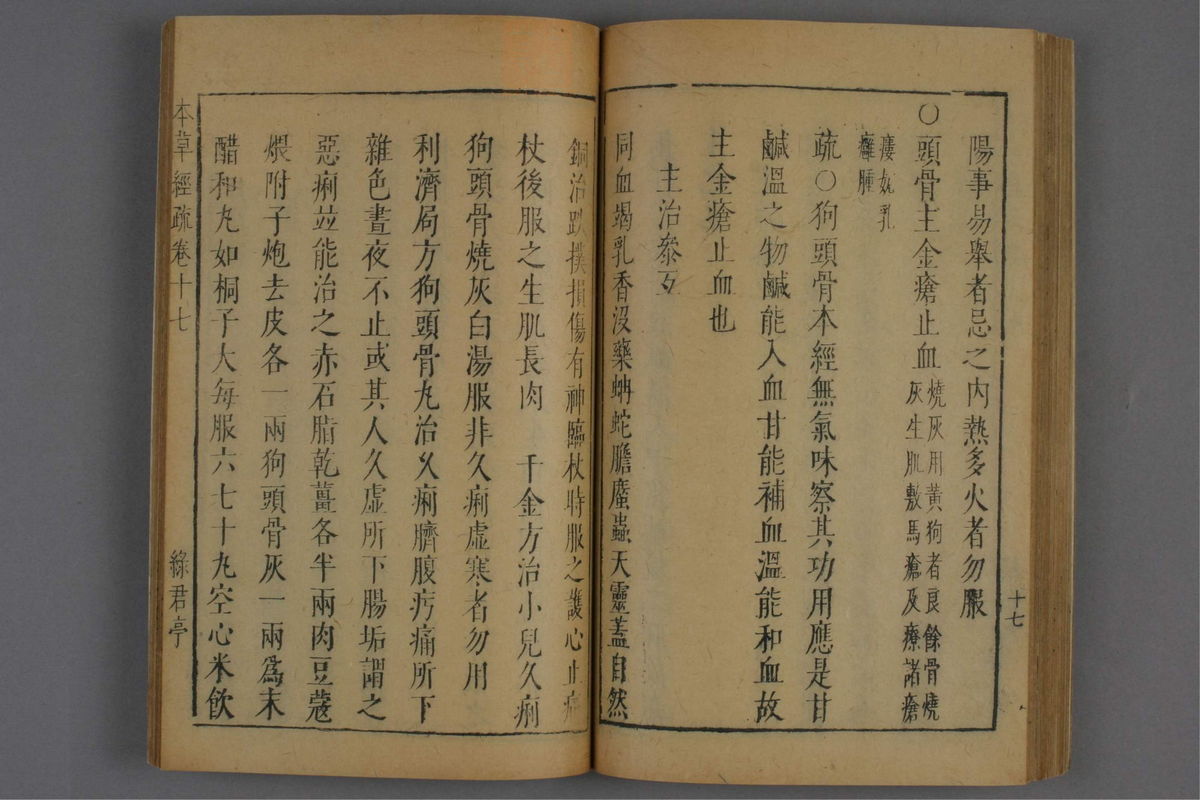 陽事易舉者忌之內熱多火者勿服
〇頭骨主金瘡止血燒灰用黃狗者良餘骨燒灰生肌敷馬瘡及療諸瘡
瘻妬乳癰腫
疏〇狗頭骨本經無氣味察其功用應是甘
鹹溫之物鹹能入血甘能補血溫能和血故
主金瘡止血也
主治叅互
同血竭乳香沒藥蚺蛇膽䗪蟲天靈蓋自然
十七
銅治跌撲損傷有神臨杖時服之護心止痛
杖後服之生肌長肉 千金方治小兒久痢
狗頭骨燒灰白湯服非久痢虛寒者勿用
利濟局方狗頭骨丸治久痢臍腹㽲痛所下
雜色晝夜不止或其人久虛所下腸垢謂之
惡痢並能治之赤石脂乾薑各半兩肉豆蔻
煨附子炮去皮各一兩狗頭骨灰一兩為末
醋和丸如桐子大每服六七十丸空心米飲
本草經疏卷十七
綠君亭